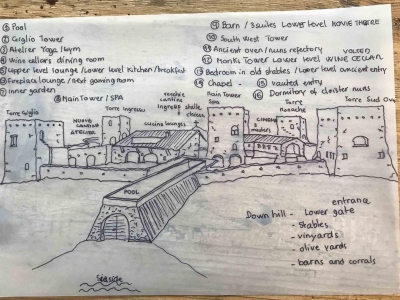 Pool
① Giglio Tower
② Atelier Yoga/Gym
④ Wine cellars dinning room
⑤ Upper level lounge/Lower level Kitchen/breakfast
⑥ Fireplace lounge/next gaming room
⑦ Inner garden
⑧ Main Tower/SPA
⑨ Barn/3 suites Lower Level MOVIE THEATRE
⑩ South West Tower
⑪ Ancient oven/nuns refectory
⑫ Monks Tower Lower level VOLTED WINE CELLAR
⑬ Bedroom in old stables/lower level ancient entry
⑭ Chapel - ⑮ vaulted entry
⑯ Dormitory of cloister nuns
Torre Giglio
ATELIER
Torre Ingresso
vecchie cantine
ingresso stalle
chiesa
cucina lounges
Main Tower
Spa
CINEMA
Torre
Monache
Torre Sud
POOL
entrance
Down hill - Lower gate
- Stables
- vinyards
- olive yards
- barns and corrals
Seaside